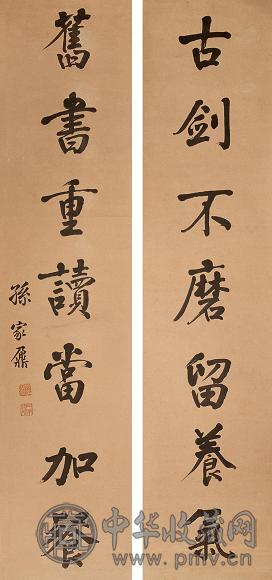 古劍不磨留養氣
舊書重讀當加餐
孫家鼐
中华收藏网
www.pmv.cn